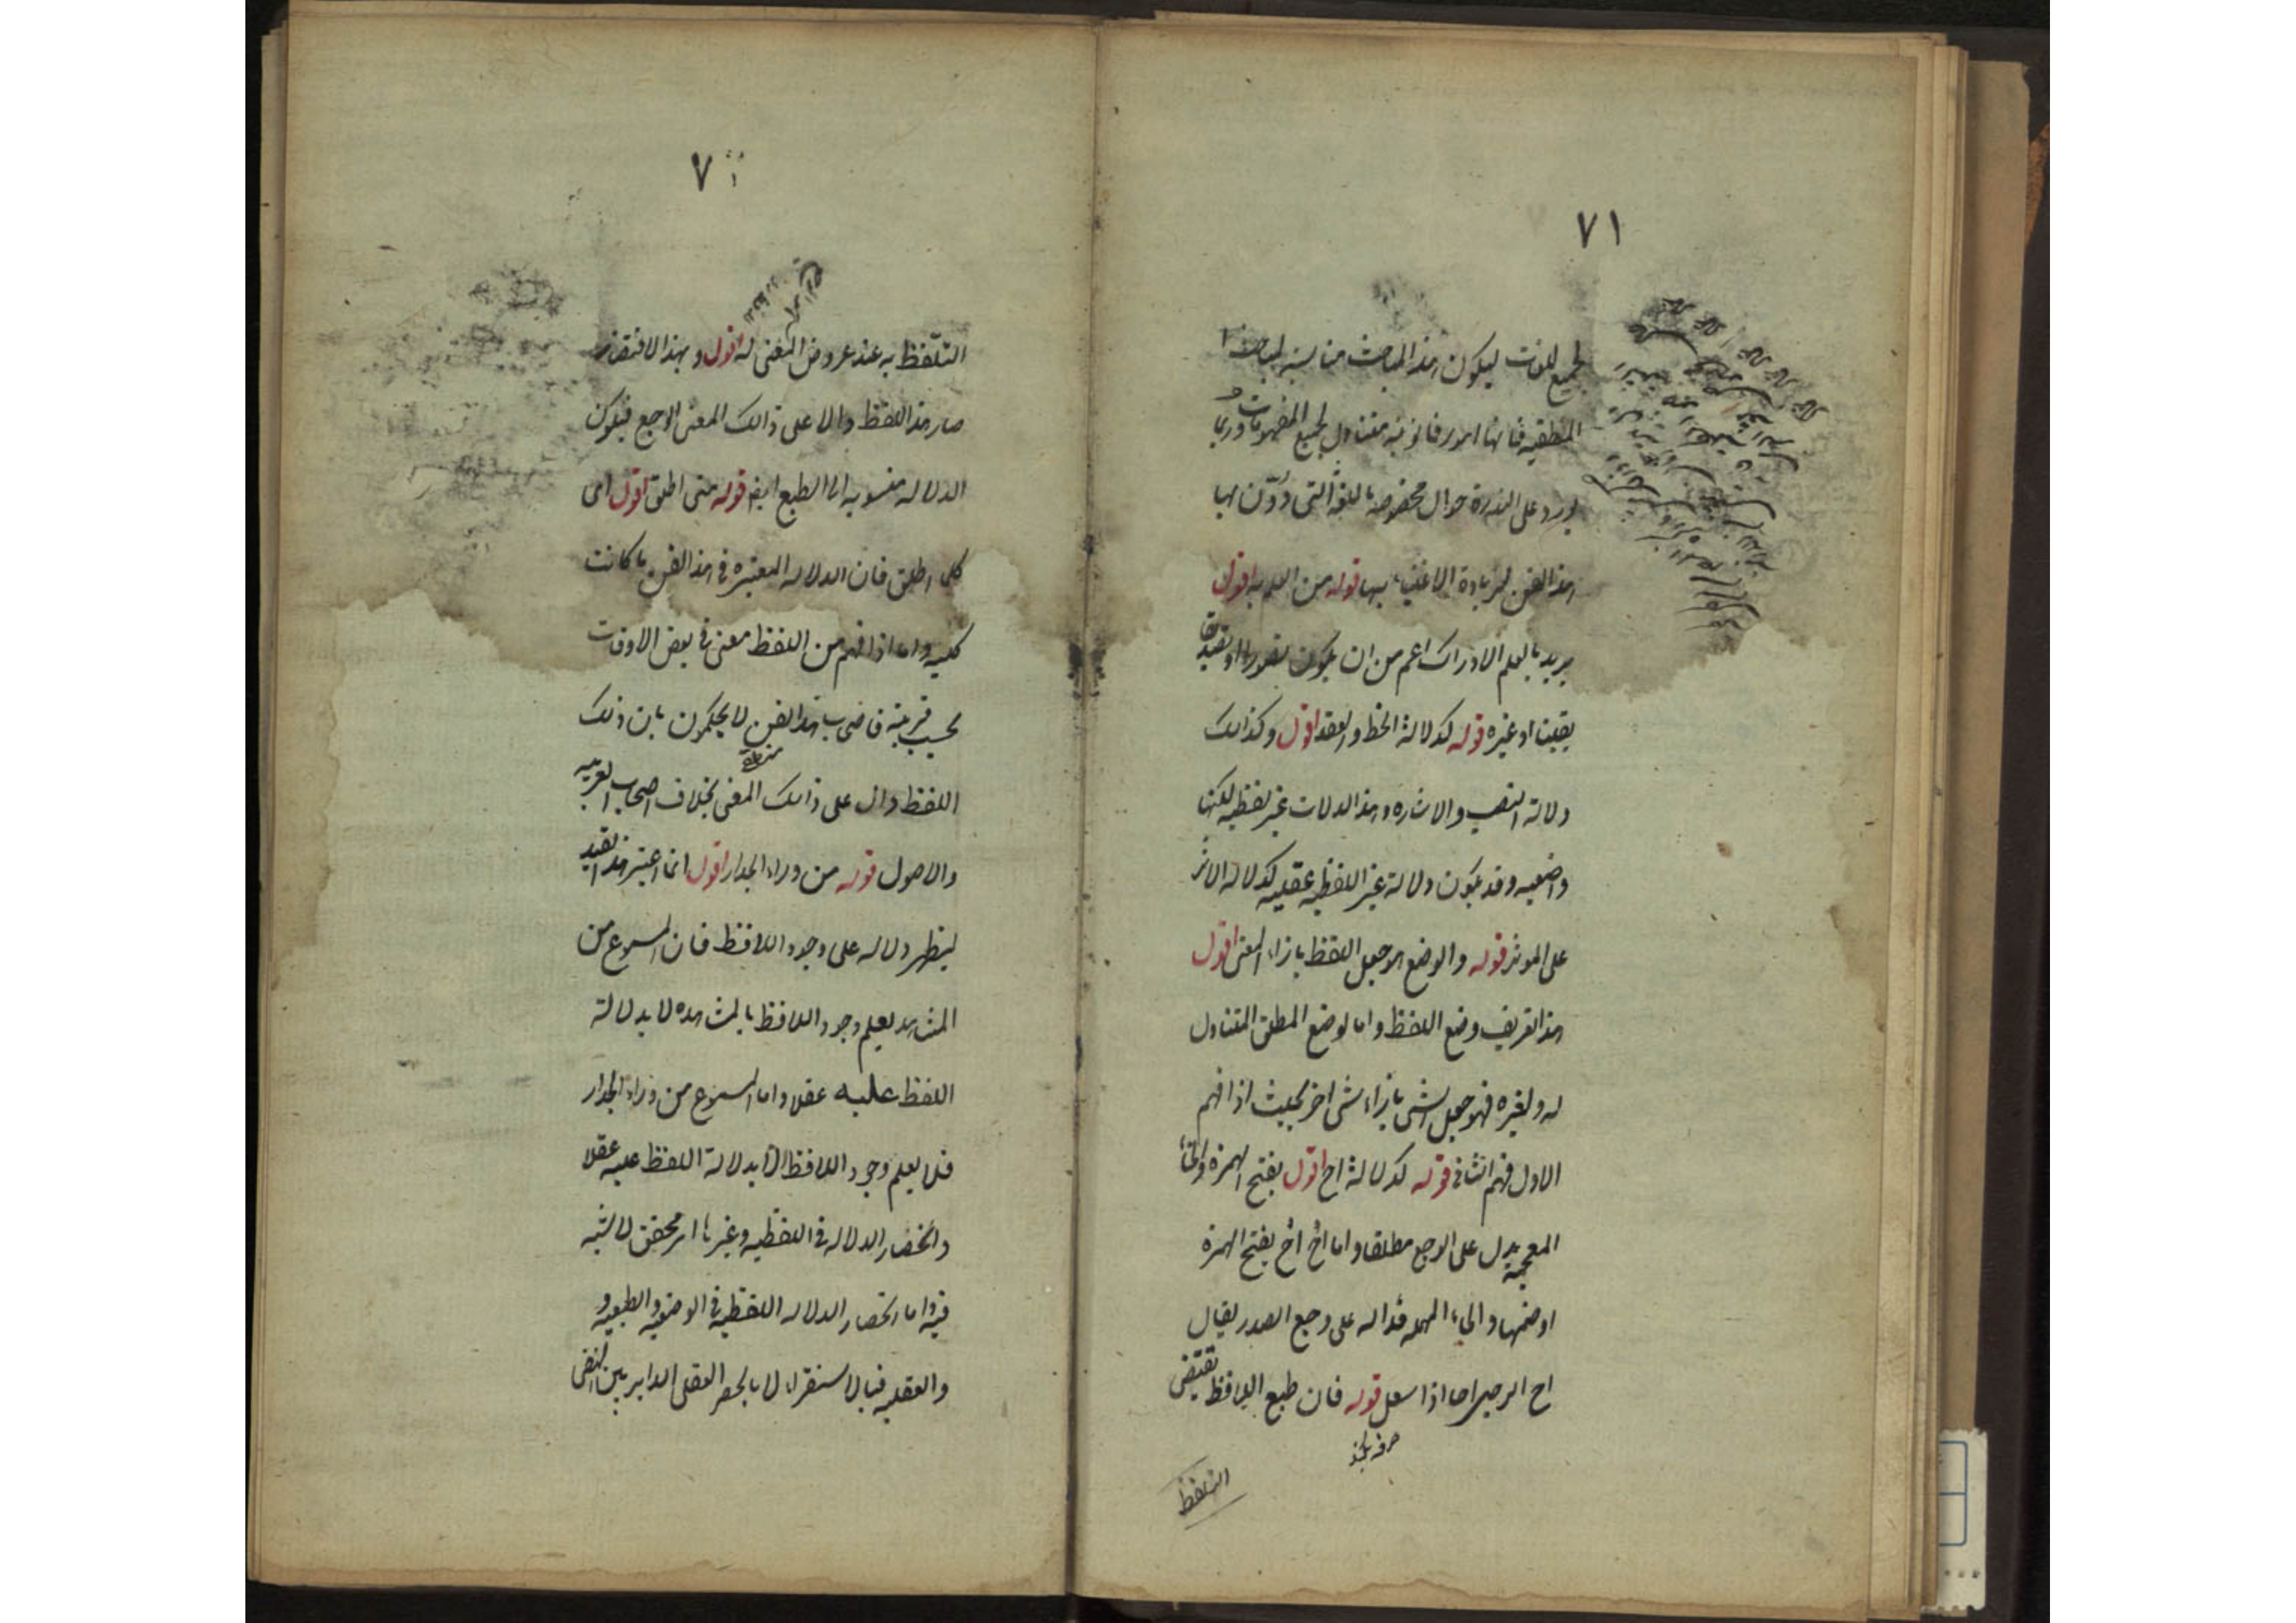 ٧١
لجميع اللغات ليكون هذه المباحث مناسبة لمباحث
المنطقيه فانها امور قانونيه متناول لجميع المفهومات وربما
يورد على الندرة احوال مخصوصه باللغة التى دُوّن بها
هذا الفن لزيادة الاعتناء بها قوله من العلم به اقول
يريد بالعلم الادراك اعم من ان يكون تصورا او تصديقا
يقينيا او غيره قوله كدلالة الخط والعقد اقول وكذالك
دلالة النصب والاشاره وهذه الدلالات غير لفظيه لكنها
وضعيه وقد يكون دلالة غير اللفظيه عقليه كدلالة الاثر
على الموثر قوله والوضع هو جعل اللفظ بازاء المعنى اقول
هذا تعريف وضع اللفظ واما الوضع المطلق المتناول
له ولغيره فهو جعل الشى بازاء شى اخر بحيث اذا فهم
الاول فهم الثانى قوله كدلالة اخ اقول بفتح الهمزه والخاء
المعجمه يدل على الوجع مطلقا واما اح اح بفتح الهمزه
او ضمها والحاء المهمله فداله على وجع الصدر يقال
اح الرجل احا اذا سعل قوله فان طبع اللافظ يقتضى
التلفظ
٧
التلفظ به عند عروض المعنى له اقول وبهذا الاقتضاء
صار هذا اللفظ دالا على ذالك المعنى الوجع فيكون
الدلاله منسوبه الى الطبع ايضا قوله متى اطلق اقول اى
كلما اطلق فان الدلاله المعتبره فى هذا الفن ما كانت
كليه واما اذا فهم من اللفظ معنى فى بعض الاوقات
بحسب قرينه فاصحاب هذا الفن لا يحكمون بان ذلك
اللفظ دال على ذالك المعنى بخلاف اصحاب العربيه
والاصول قوله من وراء الجدار اقول انما اعتبر هذا القيد
ليظهر دلاله على وجود اللافظ فان المسموع من
المشاهد يعلم وجود اللافظ بالمشاهده لا بدلالة
اللفظ عليه عقلا واما المسموع من وراء الجدار
فلا يعلم وجود اللافظ الا بدلالة اللفظ عليه عقلا
وانحصار الدلاله فى اللفظيه وغيرها امر محقق لا شبه
فيه واما انحصار الدلاله اللفظيه فى الوضعيه والطبعيه و
والعقليه فبالاستقراء لا بالحصر العقلى الداير بين النفى